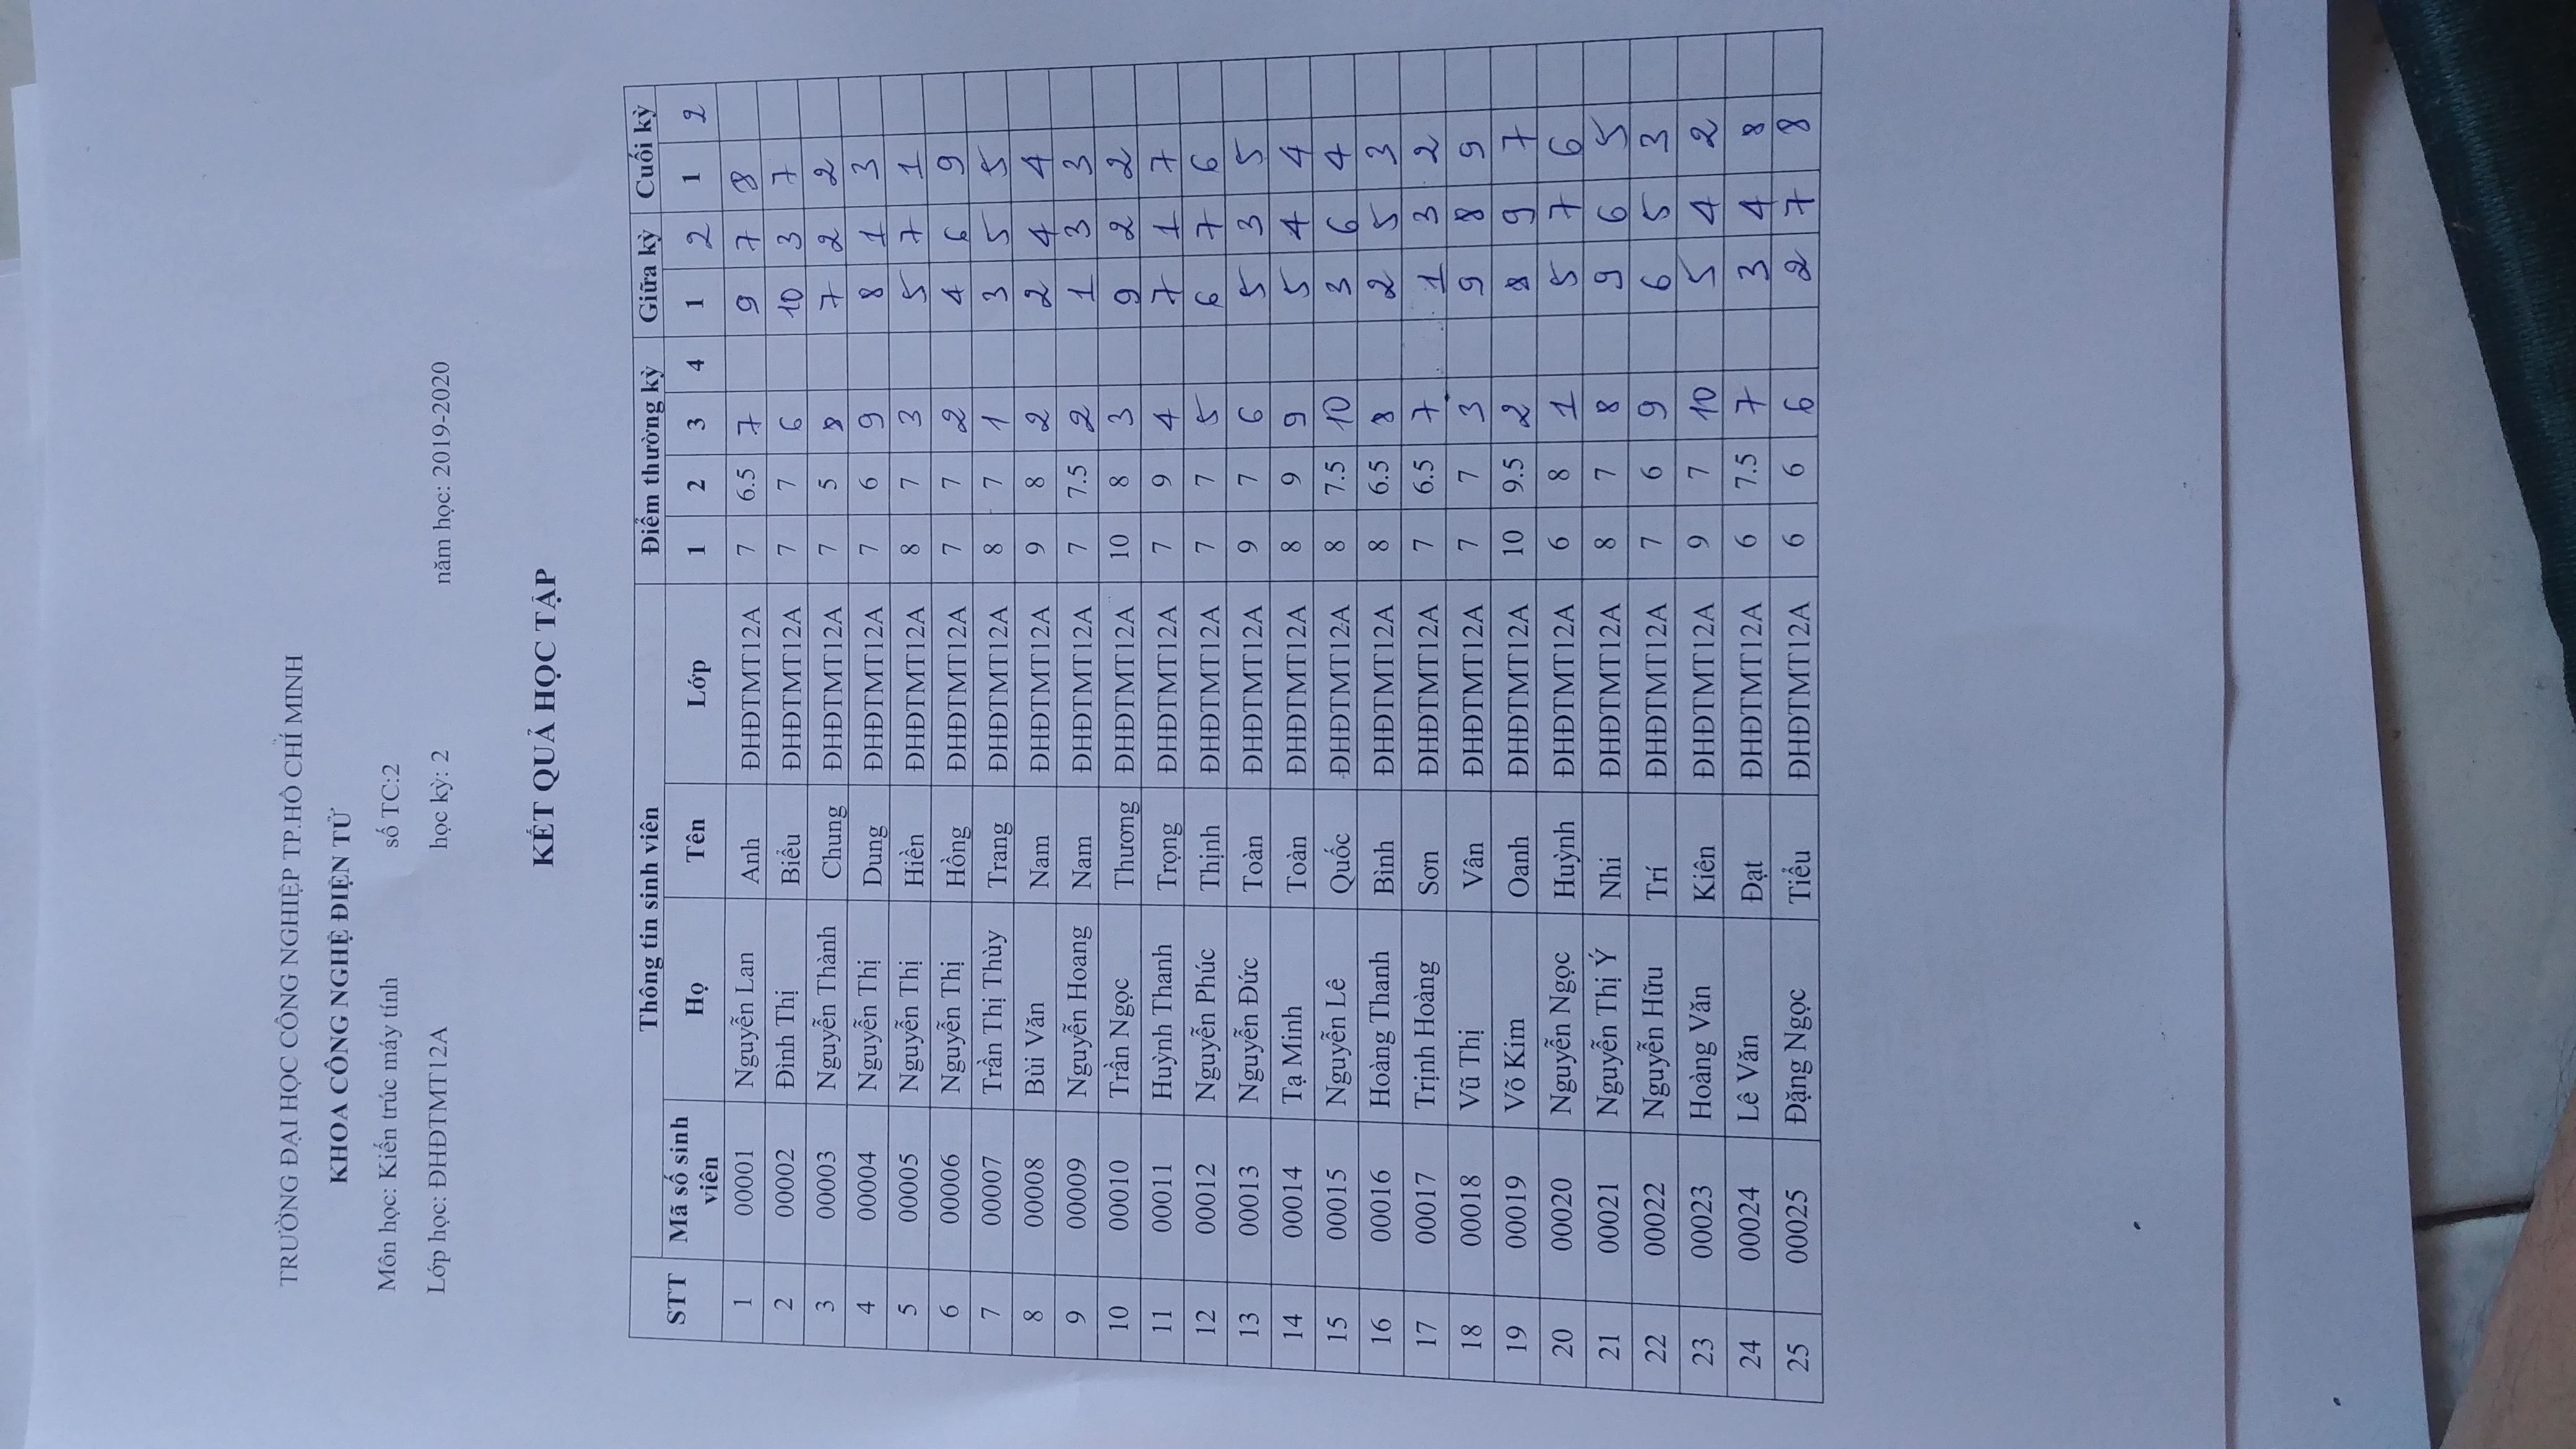 TRƯỜNG ĐẠI HỌC CÔNG NGHIỆP TP.HỒ CHÍ MINH
KHOA CÔNG NGHỆ ĐIỆN TỬ
Môn học: Kiến trúc máy tính số TC:2
Lớp học: ĐHĐTMT12A học kỳ: 2 năm học: 2019-2020
KẾT QUẢ HỌC TẬP
STT Thông tin sinh viên Điểm thường kỳ Giữa kỳ Cuối kỳ
Mã số sinh viên Họ Tên Lớp 1 2 3 4 1 2 1 2
1 00001 Nguyễn Lan Anh ĐHĐTMT12A 7 6.5 7 9 7 8
2 00002 Đình Thị Biểu ĐHĐTMT12A 7 7 6 10 3 7
3 00003 Nguyễn Thành Chung ĐHĐTMT12A 7 5 8 7 2 2
4 00004 Nguyễn Thị Dung ĐHĐTMT12A 7 6 9 8 1 3
5 00005 Nguyễn Thị Hiền ĐHĐTMT12A 8 7 3 5 7 1
6 00006 Nguyễn Thị Hồng ĐHĐTMT12A 7 7 2 4 6 9
7 00007 Trần Thị Thùy Trang ĐHĐTMT12A 8 7 1 3 5 5
8 00008 Bùi Văn Nam ĐHĐTMT12A 9 8 2 2 4 4
9 00009 Nguyễn Hoang Nam ĐHĐTMT12A 7 7.5 2 1 3 3
10 00010 Trần Ngọc Thương ĐHĐTMT12A 10 8 3 9 2 2
11 00011 Huỳnh Thanh Trọng ĐHĐTMT12A 7 9 4 7 1 7
12 00012 Nguyễn Phúc Thịnh ĐHĐTMT12A 7 7 5 6 7 6
13 00013 Nguyễn Đức Toàn ĐHĐTMT12A 9 7 6 5 3 5
14 00014 Tạ Minh Toàn ĐHĐTMT12A 8 9 9 5 4 4
15 00015 Nguyễn Lê Quốc ĐHĐTMT12A 8 7.5 10 3 6 4
16 00016 Hoàng Thanh Bình ĐHĐTMT12A 8 6.5 8 2 5 3
17 00017 Trịnh Hoàng Sơn ĐHĐTMT12A 7 6.5 7 1 3 2
18 00018 Vũ Thị Vân ĐHĐTMT12A 7 7 3 9 8 9
19 00019 Võ Kim Oanh ĐHĐTMT12A 10 9.5 2 8 9 7
20 00020 Nguyễn Ngọc Huỳnh ĐHĐTMT12A 6 8 1 5 7 6
21 00021 Nguyễn Thị Ý Nhi ĐHĐTMT12A 8 7 8 9 6 5
22 00022 Nguyễn Hữu Trí ĐHĐTMT12A 7 6 9 6 5 3
23 00023 Hoàng Văn Kiên ĐHĐTMT12A 9 7 10 5 4 2
24 00024 Lê Văn Đạt ĐHĐTMT12A 6 7.5 7 3 4 8
25 00025 Đặng Ngọc Tiểu ĐHĐTMT12A 6 6 6 2 7 8